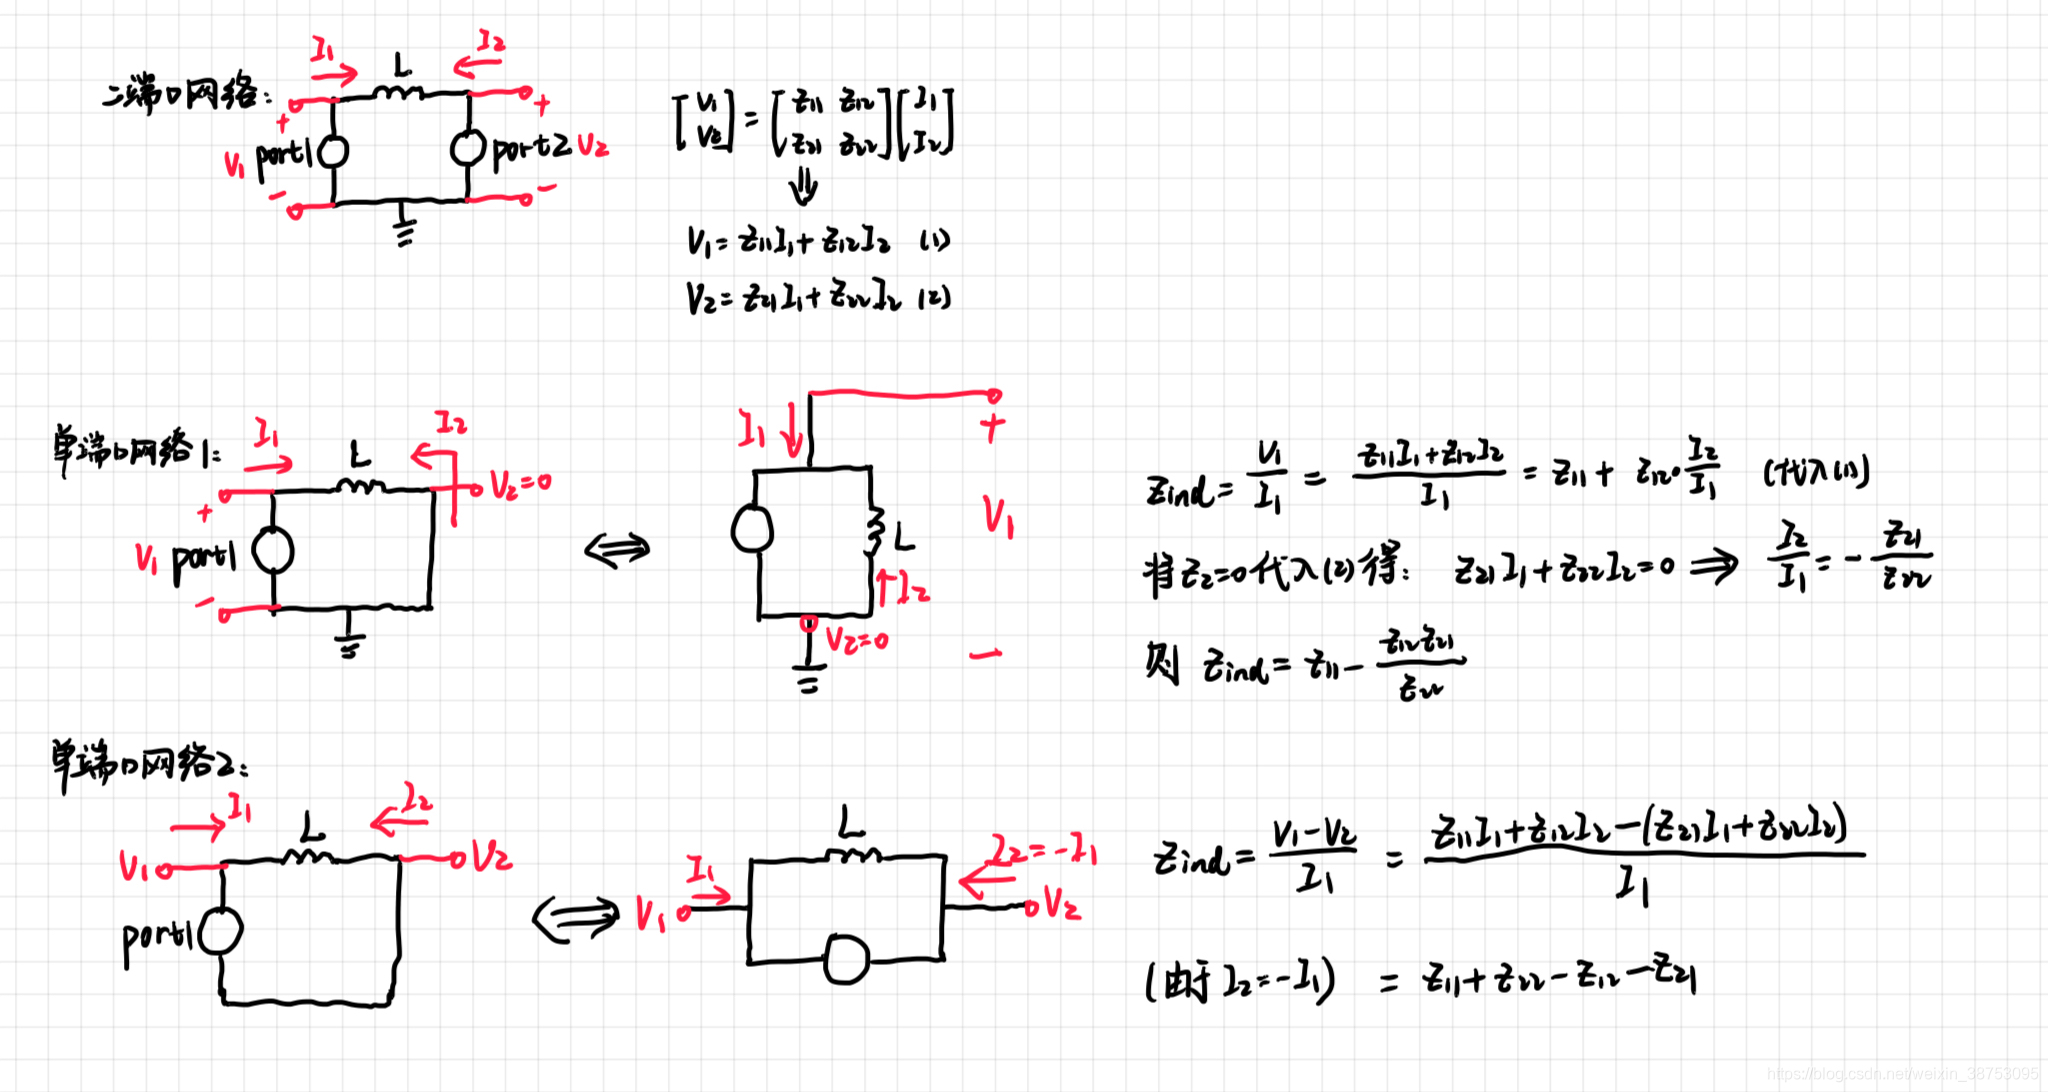 二端口网络:
I1
L
I2
+
+
V1 port1
port2 V2
-
-
[V1 V2] = [Z11 Z12 Z21 Z22][I1 I2]
⇓
V1 = Z11I1 + Z12I2 (1)
V2 = Z21I1 + Z22I2 (2)
单端口网络1:
I1
L
I2
V2=0
+
V1 port1
-
⇔
I1
+
V1
L
I2
V2=0
-
Zind = V1/I1 = (Z11I1+Z12I2)/I1 = Z11 + Z12·I2/I1 (代入(1))
将Z2=0代入(2)得: Z21I1+Z22I2=0 ⇒ I2/I1 = -Z21/Z22
则 Zind = Z11 - Z12Z21/Z22
单端口网络2:
I1
L
I2
V1
V2
port1
⇔
L
I1
I2=-I1
V1
V2
Zind = (V1-V2)/I1 = (Z11I1+Z12I2-(Z21I1+Z22I2))/I1
(由于I2=-I1) = Z11+Z22-Z12-Z21
https://blog.csdn.net/weixin_38753095